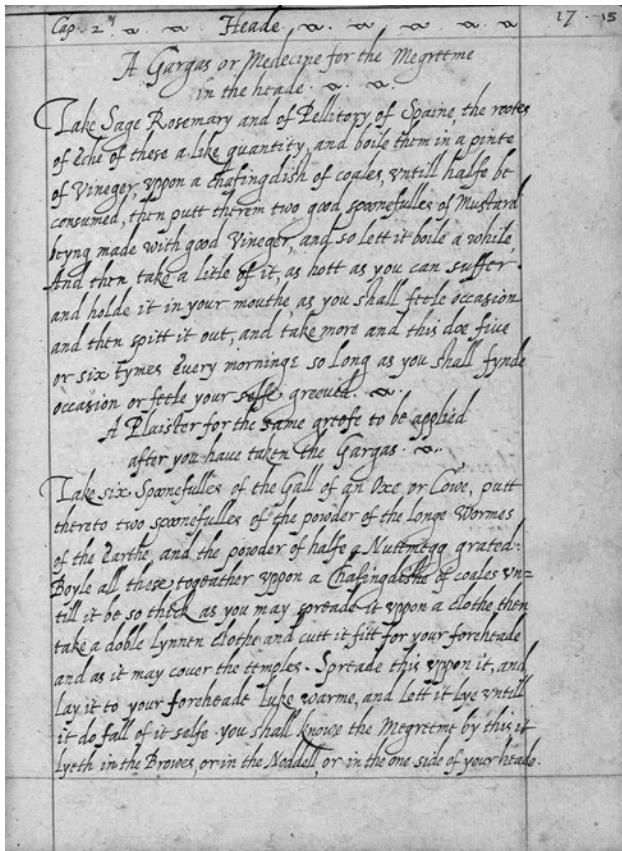 Cap. 2m Heade 17 15
A Gargas or Medecine for the Megreeme
in the heade.
Take Sage Rosemary and of Pellitory of Spaine, the rootes
of Eche of these a like quantity, and boile them in a pinte
of Vineger, vppon a chafingdish of coales, vntill halfe be
consumed, then putt therein two good spoonefulles of Mustard
beyng made with good Vineger, and so lett it boile a while,
And then take a litle of it, as hott as you can suffer.
and holde it in your mouthe, as you shall feele occasion
and then spitt it out, and take more and this doe five
or six tymes Every morninge so Long as you shall fynde
occasion or feele your selfe greeued.
A Plaister for the same greefe to be applied
after you have taken the Gargas.
Take six Spoonefulles of the Gall of an Oxe or Cowe, putt
thereto two spoonefulles of the powder of the Longe Wormes
of the Earthe, and the powder of halfe a Nuttmegg grated:
Boyle all these togeather vppon a Chafingdishe of coales vn=
till it be so thick as you may spreade it vppon a clothe, then
take a doble Lynnen clothe and cutt it fitt for your foreheade
and as it may couer the temples. Spreade this vppon it, and
Lay it to your foreheade Luke warme, and lett it Lye vntill
it do fall of it selfe. you shall knowe the Megreeme by this it
Lyeth in the Browes, or in the Noddell, or in the one side of your heade.